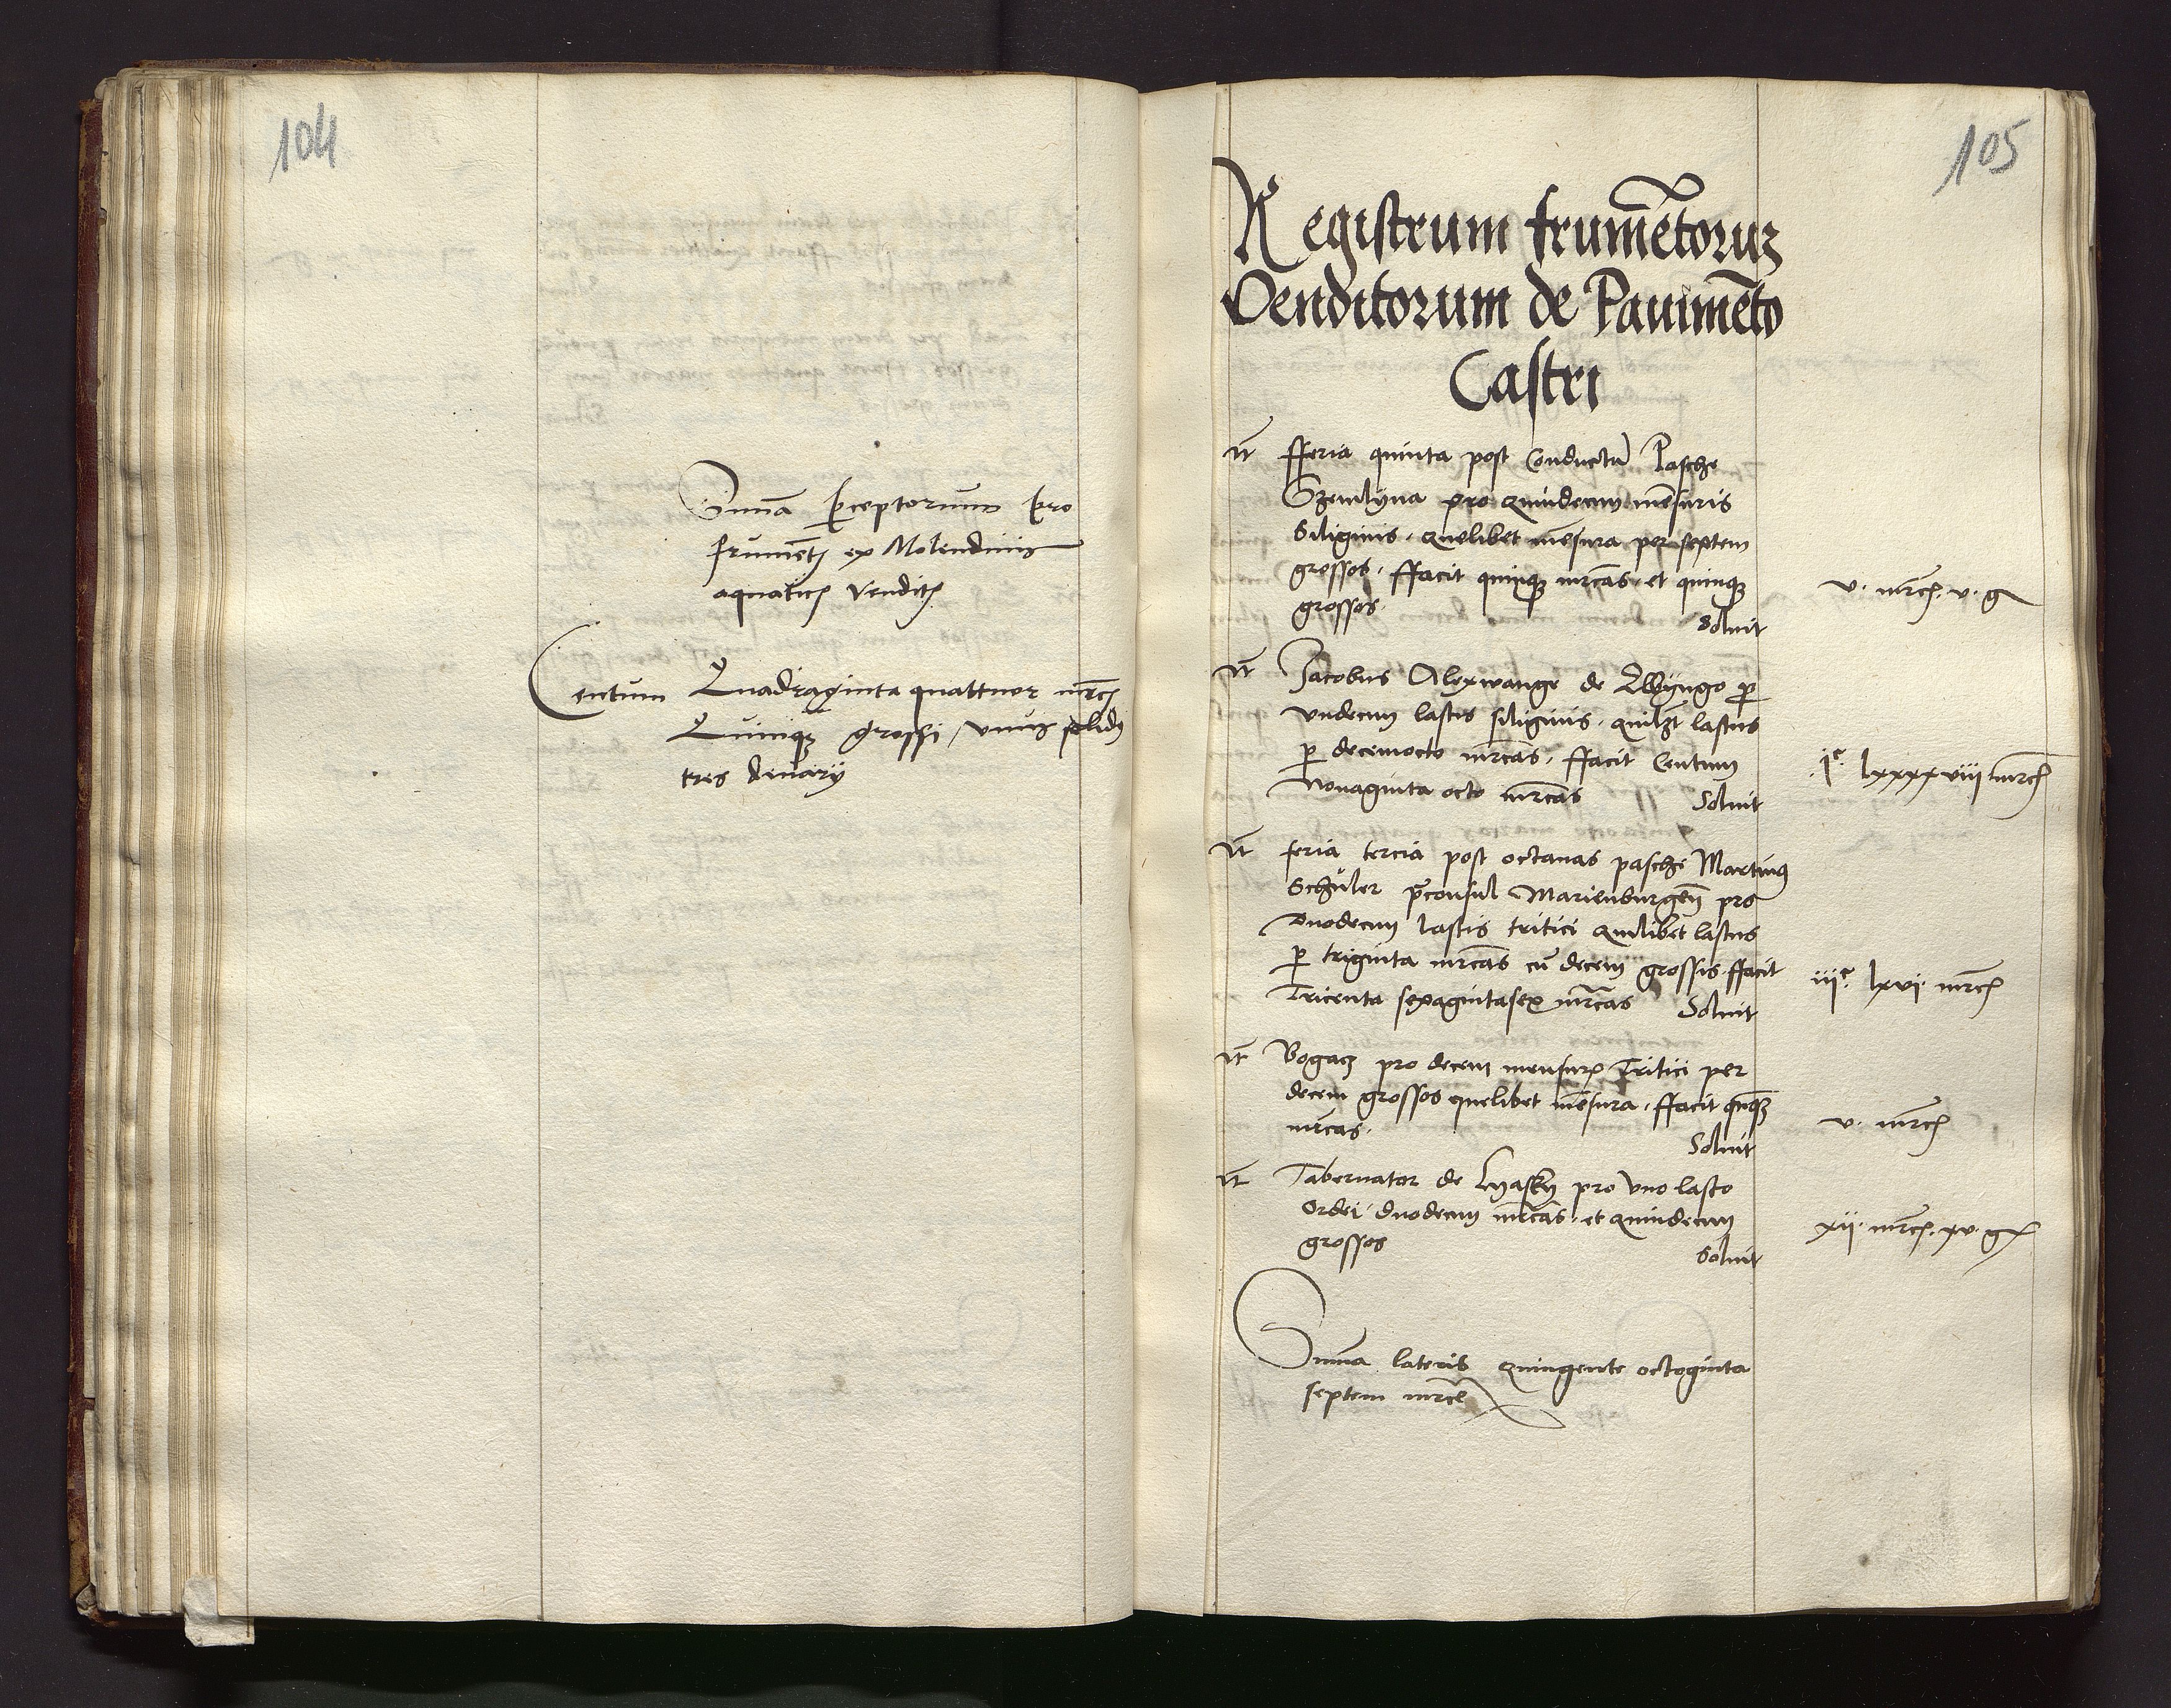 104
Sum̄a p̄ceptorum pro
frumētꝭ ex Molendinis
aquaticꝭ Venditꝭ
Centum Quadraginta quattuor mrcꝭ
Quinqꝫ grossi, vnus solidꝭ
tres denarÿ
105
Registrum frumētoruꝫ
Venditorum de Pauimēto
Castri
It̄ fferia quinta post Conductū Pasche
pro quindecim mēsuris
Siliginis, quelibet mēsura per septem
grossos, ffacit quinqꝫ mrcas, et quinqꝫ
grossos.
Soluit
v. mrcꝭ. v. g
It̄ Jacobus Alexwange de ꝑ
vndecim lastis siliginis, quilꝫt lastus
ꝑ decemocto mrcas, ffacit Centum
Nonaginta octo mrcas Soluit
.jᶜ. lxxxxviii mrcꝭ
It̄ feria tercia post octauas pasche Martinus
Schuler p̄consul Marienburgen̄ pro
Duodecim lastis tritici quilibet lastus
ꝑ triginta mrcas cū decem grossis ffacit
Tricenta sexagintasex mrcas Soluit
iijᶜ. lxvi. mrcꝭ
It̄ Bogacz pro decem mensurꝭ Tritici per
decem grossos quelibet mēsura, ffacit quinqꝫ
mrcas.
Soluit
v. mrcꝭ
It̄ Tabernator de Lyasky pro Vno lasto
Ordei duodecim mrcas, et quindecim
grossos
Soluit
xij. mrcꝭ. xv. g
Sum̄a lateris quingente octoginta
septem mrce